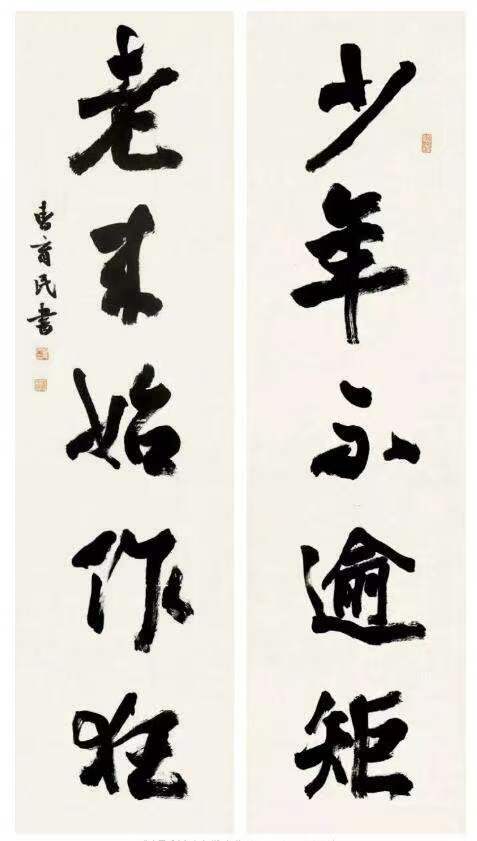 少年不逾矩
老来始作狂
曹育民書